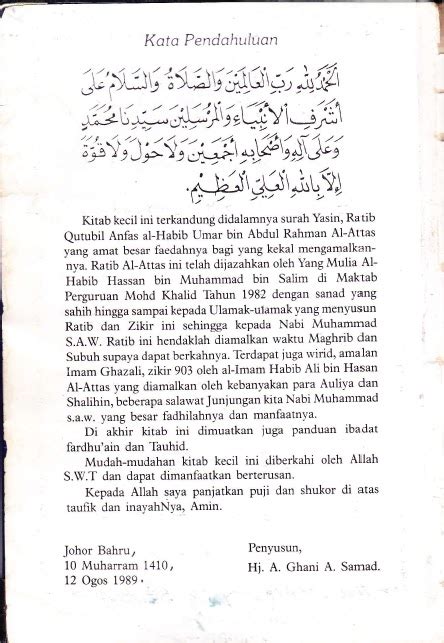 Kata Pendahuluan
اَلْحَمْدُ لِلّٰهِ رَبِّ الْعَالَمِيْنَ وَالصَّلَاةُ وَالسَّلَامُ عَلَى
اَشْرَفِ الْاَنْبِيَاءِ وَالْمُرْسَلِيْنَ سَيِّدِنَا مُحَمَّدٍ
وَعَلَى آلِهِ وَاَصْحَابِهِ اَجْمَعِيْنَ وَلَا حَوْلَ وَلَا قُوَّةَ
اِلَّا بِاللّٰهِ الْعَلِيِّ الْعَظِيْمِ.
Kitab kecil ini terkandung didalamnya surah Yasin, Ratib
Qutubil Anfas al-Habib Umar bin Abdul Rahman Al-Attas
yang amat besar faedahnya bagi yang kekal mengamalkan-
nya. Ratib Al-Attas ini telah dijazahkan oleh Yang Mulia Al-
Habib Hassan bin Muhammad bin Salim di Maktab
Perguruan Mohd Khalid Tahun 1982 dengan sanad yang
sahih hingga sampai kepada Ulamak-ulamak yang menyusun
Ratib dan Zikir ini sehingga kepada Nabi Muhammad
S.A.W. Ratib ini hendaklah diamalkan waktu Maghrib dan
Subuh supaya dapat berkahnya. Terdapat juga wirid, amalan
Imam Ghazali, zikir 903 oleh al-Imam Habib Ali bin Hasan
Al-Attas yang diamalkan oleh kebanyakan para Auliya dan
Shalihin, beberapa salawat Junjungan kita Nabi Muhammad
s.a.w. yang besar fadhilahnya dan manfaatnya.
Di akhir kitab ini dimuatkan juga panduan ibadat
fardhu'ain dan Tauhid.
Mudah-mudahan kitab kecil ini diberkahi oleh Allah
S.W.T dan dapat dimanfaatkan berterusan.
Kepada Allah saya panjatkan puji dan shukor di atas
taufik dan inayahNya, Amin.
Johor Bahru,
10 Muharram 1410,
12 Ogos 1989.
Penyusun,
Hj. A. Ghani A. Samad.